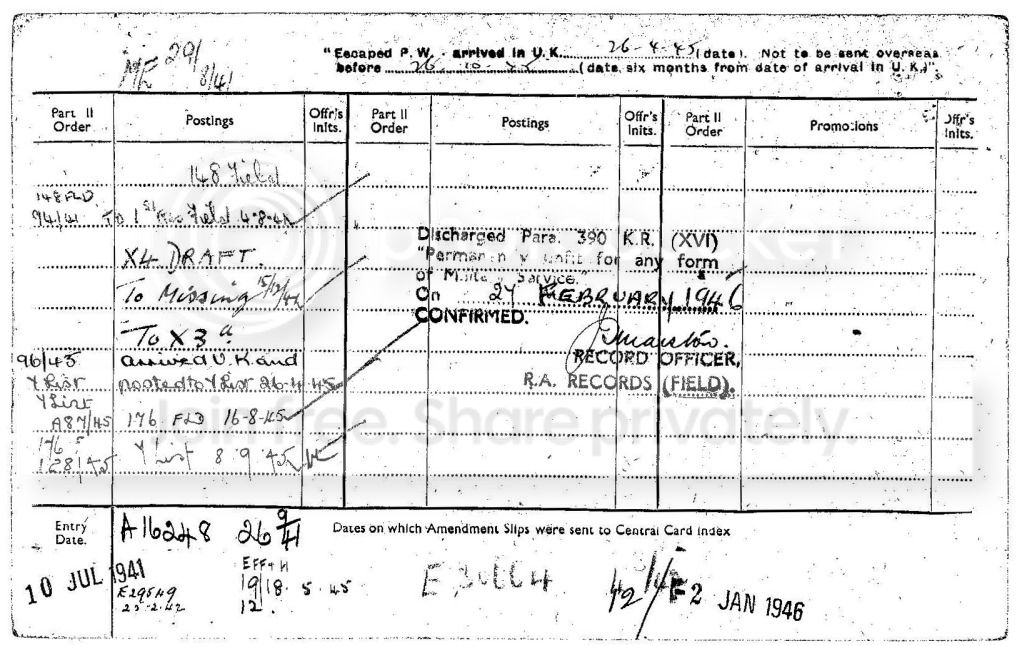 ME 29/8/41
"Escaped P.W. - arrived in U.K. 26-4-45 (date). Not to be sent overseas
before 26.10.45 (date six months from date of arrival in U.K.)".
Part II Order
Postings
Offr's Inits.
Part II Order
Postings
Offr's Inits.
Part II Order
Promotions
Offr's Inits.
148 Field
148 FLD
94/41 To 1st Field 4-8-41
X4 DRAFT.
To Missing 15/12/41
To X3 a.
96/45 arrived U.K and
Y List posted to Y List 26-4-45
Y List
A87/45 176 FLD 16-8-45
176
128/45 Y List 8.9.45
Discharged Para. 390 K.R. (XVI)
"Permanently unfit for any form
of Military Service."
On 27 FEBRUARY 1946
CONFIRMED.
RECORD OFFICER,
R.A. RECORDS (FIELD).
Join free. Share privately.
Entry Date.
Dates on which Amendment Slips were sent to Central Card Index
A16248 26 9/41
10 JUL 1941
E29549
25-2-42
EFF4H
19/18.5.45
12.
2 JAN 1946